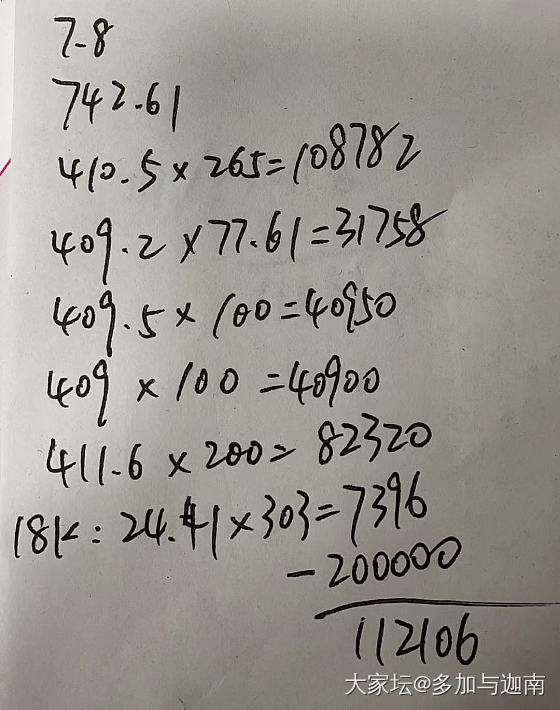 7-8
742.61
410.5×265=108782
409.2×77.61=31758
409.5×100=40950
409×100=40900
411.6×200=82320
18K:24.41×303=7396
-200000
112106
大家坛@多加与迦南